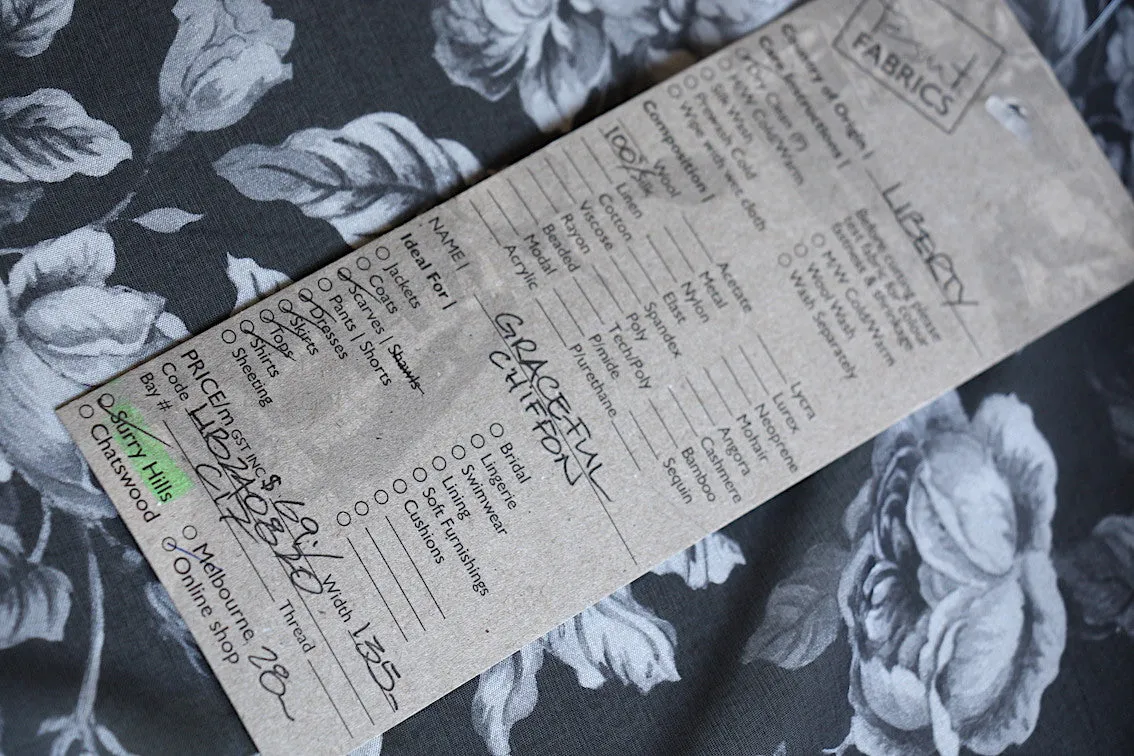 FABRICS
Country of Origin | LIBERTY
Care Instructions |
Before cutting please
test fabric for colour
fastness & shrinkage
Dry Clean (P)
H/W Cold/Warm
Silk Wash
Prewash Cold
Wipe with wet cloth
M/W Cold/Warm
Wool Wash
Wash Separately
Composition |
100% Silk Wool
Linen
Cotton
Viscose
Rayon
Beaded
Modal
Acrylic
Acetate
Metal
Nylon
Elast
Spandex
Poly
Tech/Poly
P/mide
P/urethane
Lycra
Lurex
Neoprene
Mohair
Angora
Cashmere
Bamboo
Sequin
NAME | GRACEFUL
CHIFFON
Ideal For |
Jackets
Coats
Scarves | Shawls
Pants | Shorts
Dresses
Skirts
Tops
Shirts
Sheeting
Bridal
Lingerie
Swimwear
Lining
Soft Furnishings
Cushions
PRICE/m GST INC $ 69 Width 135
Code LIB2A0830
Bay # C17 Thread
Surry Hills
Chatswood
Melbourne, 28
Online shop